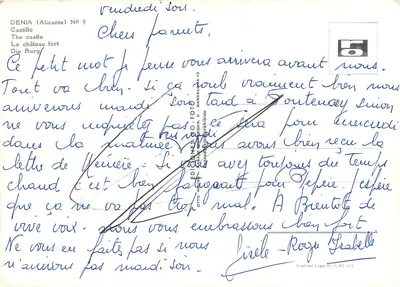 vendredi soir.
DENIA (Alicante) Nº 9
Castillo
The castle
Le château fort
Die Burg
Chers parents,
Ce petit mot je pense vous arrivera avant nous.
Tout va bien. Si ça roule vraiment bien nous
arriverons mardi soir tard à Fontenay sinon
ne vous inquiétez pas ce sera pour mercredi
dans la matinée. Nous avons bien reçu la
lettre de Mémère. Si vous avez toujours du temps
chaud c'est bien fatiguant pour Pépère j'espère
que ça ne va pas trop mal. A Bientôt de
vive voix. Nous vous embrassons bien fort
Ne vous en faites pas si nous
n'arrivons pas mardi soir.
Gisèle - Roger Isabelle